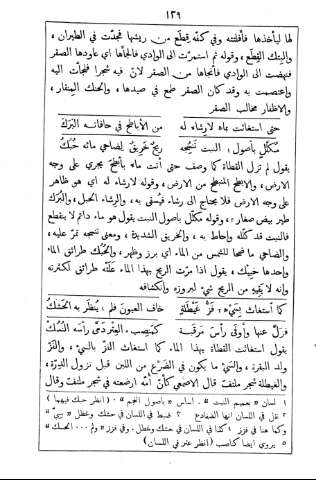 ١٣٩
لها ليأخذها فأفلتته وفي كفّه قِطَع من ريشها فجدّت في الطيران،
والبتك القِطع، وقوله ثم استمرّت الى الوادي فألجأها اي عاودها الصقر
فنهضت الى الوادي فأنجاها من الصقر لانّ فيه شجرا فلجأت اليه
واعتصمت به وقد كان الصقر طمع في صيدها، والحنك المنقار،
والاظفار مخالب الصقر
حتى استغاثت بماء لا رشاء له من الأباطح في حافاته البُرَكُ
مكلّلٍ بأصول النبت تنسجه ريحٌ خريقٌ لضاحي مائه حُبُكُ
يقول لم تزل القطاة كما وصف حتى أتت ماء بأبطح يجري على وجه
الارض، والابطح المنبطح من الارض، وقوله لا رشاء له اي هو ظاهر
على وجه الارض فلا يحتاج الى رشاء يُستقى به، والرشاء الحبل، والبُرَك
طير بيض صغار، وقوله مكلّل بأصول النبت يقول هو ماء دائم لا ينقطع
فالنبت قد كلّله وأحاط به، والخريق الشديدة، ومعنى تنسجه تمرّ عليه،
والضاحي ما ضحا للشمس من الماء اي برز وظهر، والحُبُك طرائق الماء
واحدها حبيك، يقول اذا مرّت الريح بهذا الماء علَتْه طرائق لكثرته
وانه لا يقيه من الريح شيء لبروزه وانكشافه
كما استغاث بسَيْء فزُّ غَيْطَلَةٍ خاف العيون فلم يُنظَر به الحَشَكُ
فزلّ عنها وأوفى رأس مرقبة كمنصِب العِتر دمّى رأسه النُسُكُ
يقول استغاثت القطاة بهذا الماء كما استغاث الفزّ بالسيْء، والفزّ
ولد البقرة، والسيْء ما يكون في الضرع من اللبن قبل نزول الدِرّة،
والغيطلة شجر ملتفّ قال الاصمعي كأنّ أمّه ارضعته في شجر ملتفّ وقال
١ لسان "بعميم النبت". اساس "باصول النجم" (انظر حبك فيهما)